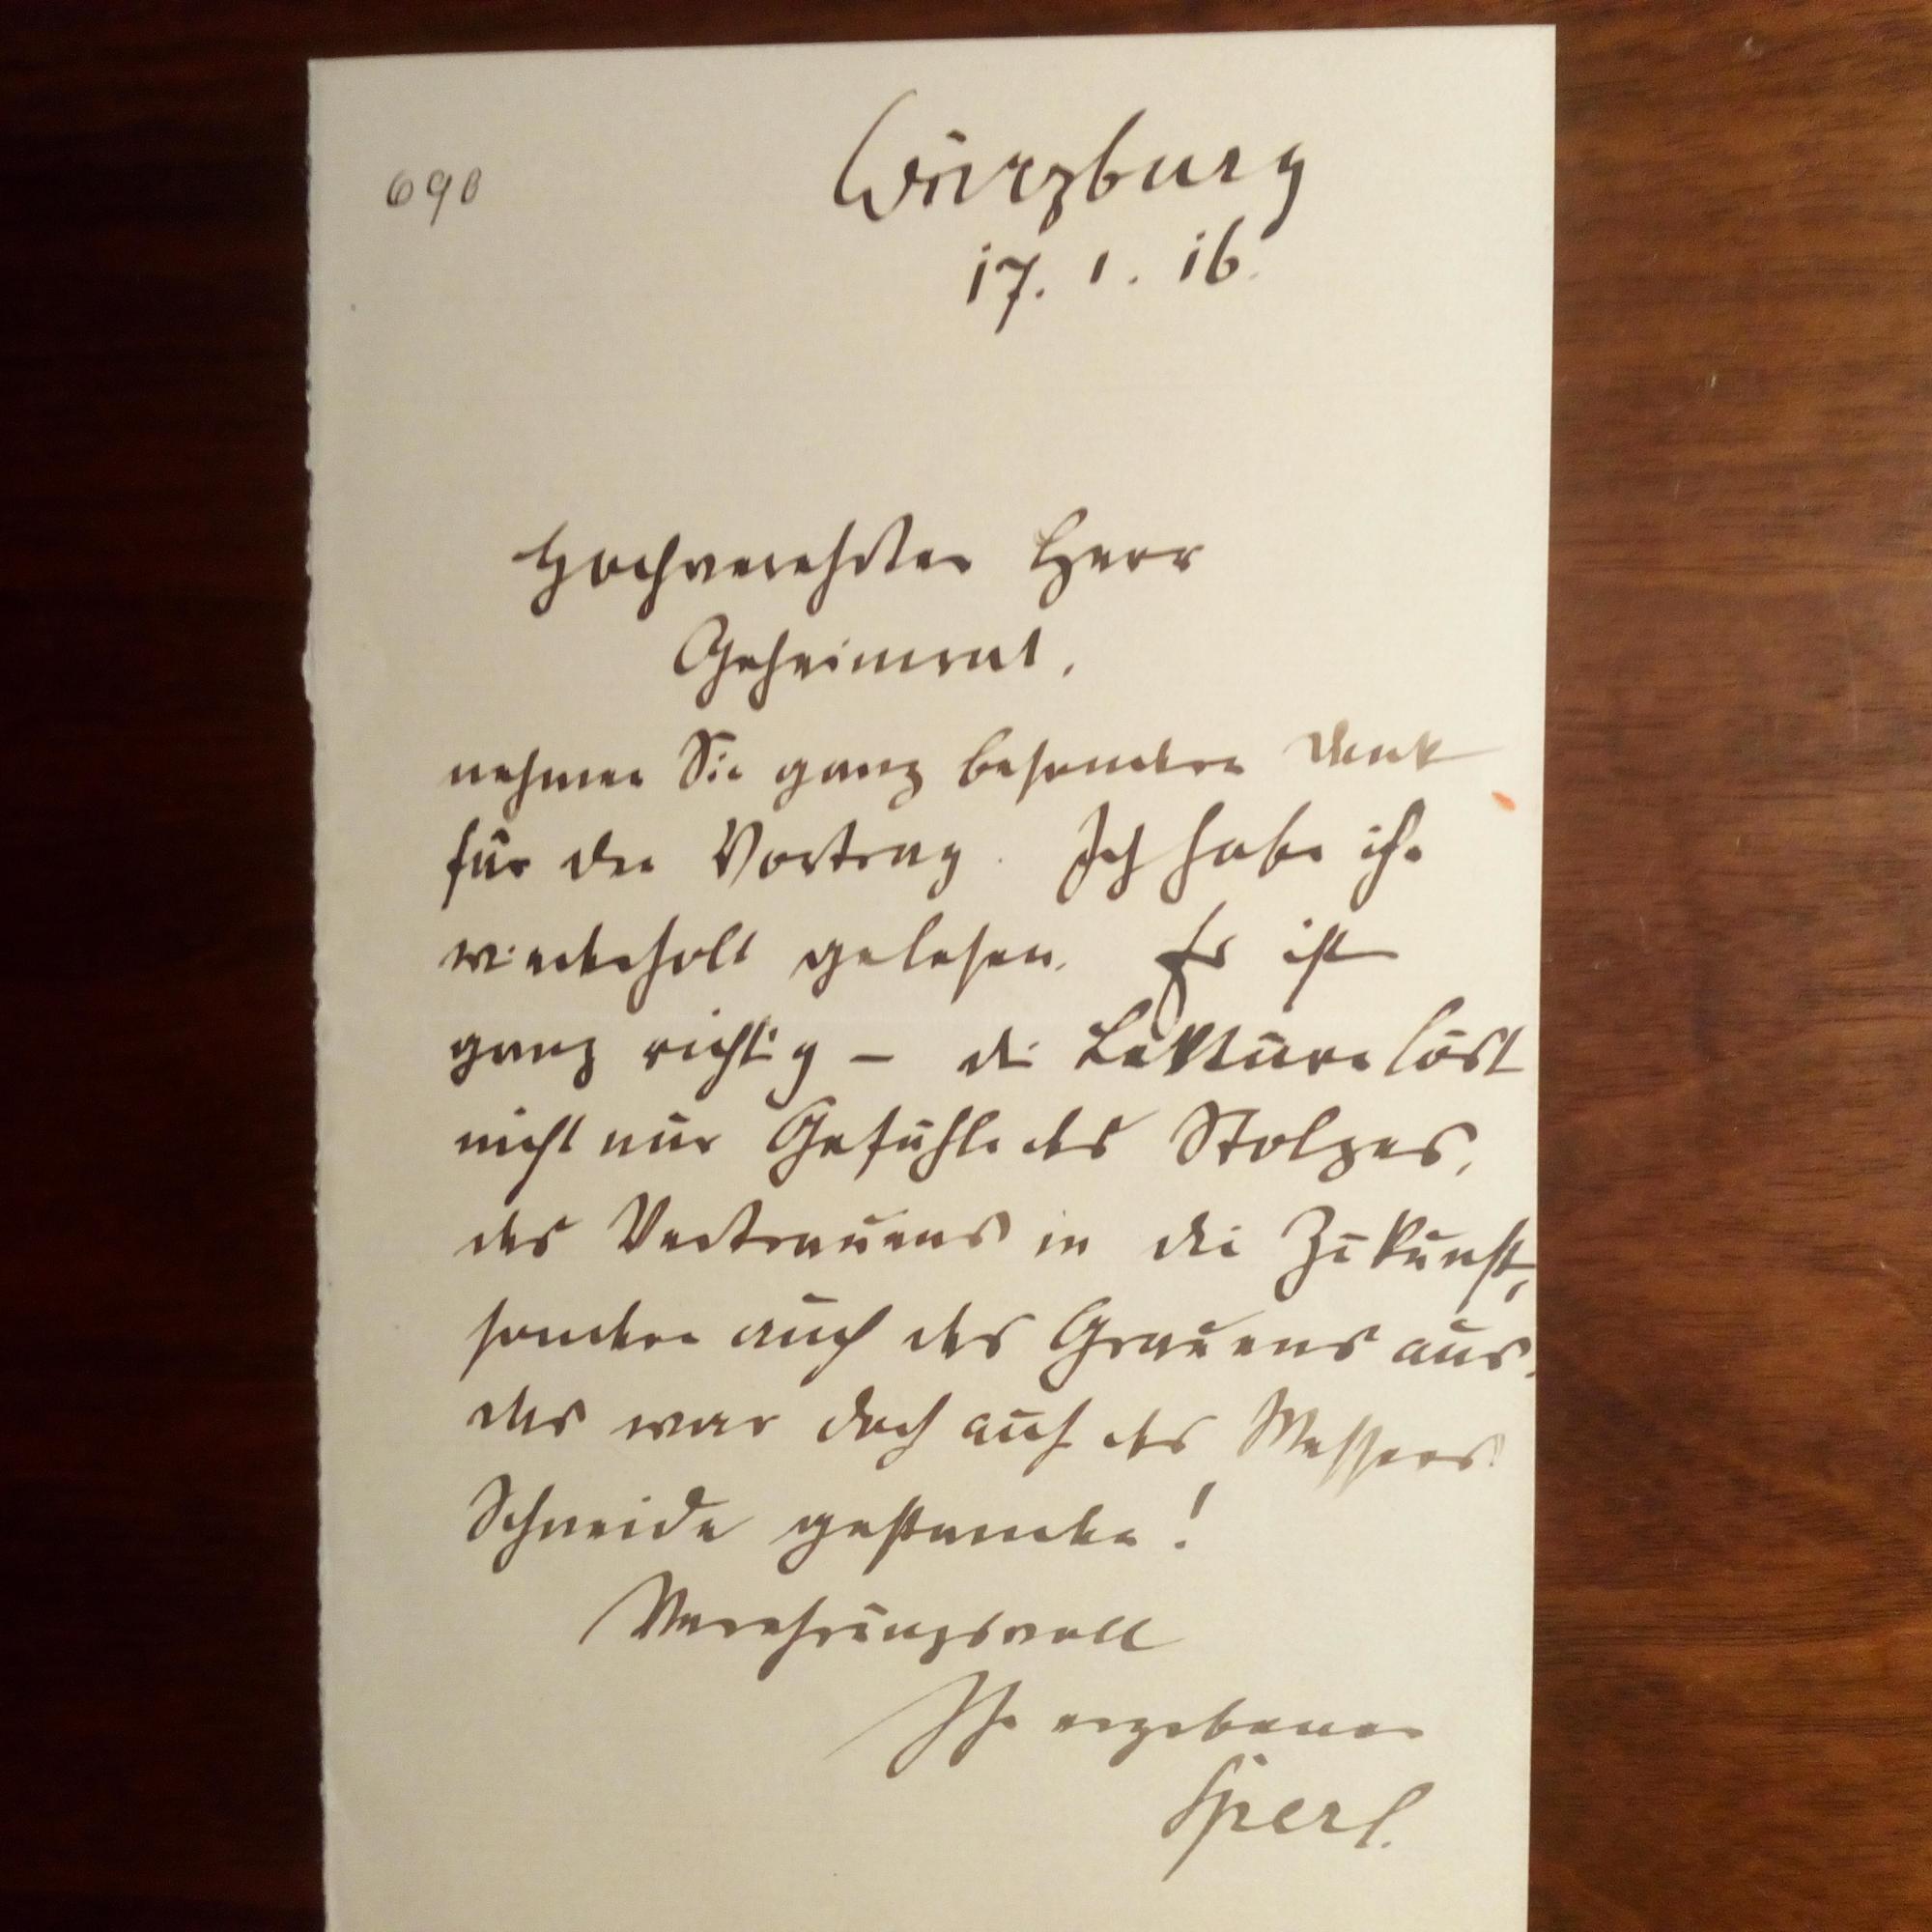 698
Würzburg
17. 1. 16.
Hochverehrter Herr
Geheimrat,
nehmen Sie ganz besonderen Dank
für den Vortrag. Ich habe ihn
wiederholt gelesen. Es ist
ganz richtig – die Lektüre löst
nicht nur Gefühle des Stolzes,
des Vertrauens in die Zukunft,
sondern auch des Grauens aus.
das war doch auf des Messers
Schneide gestanden!
Verehrungsvoll
Ihr ergebener
Sperl.